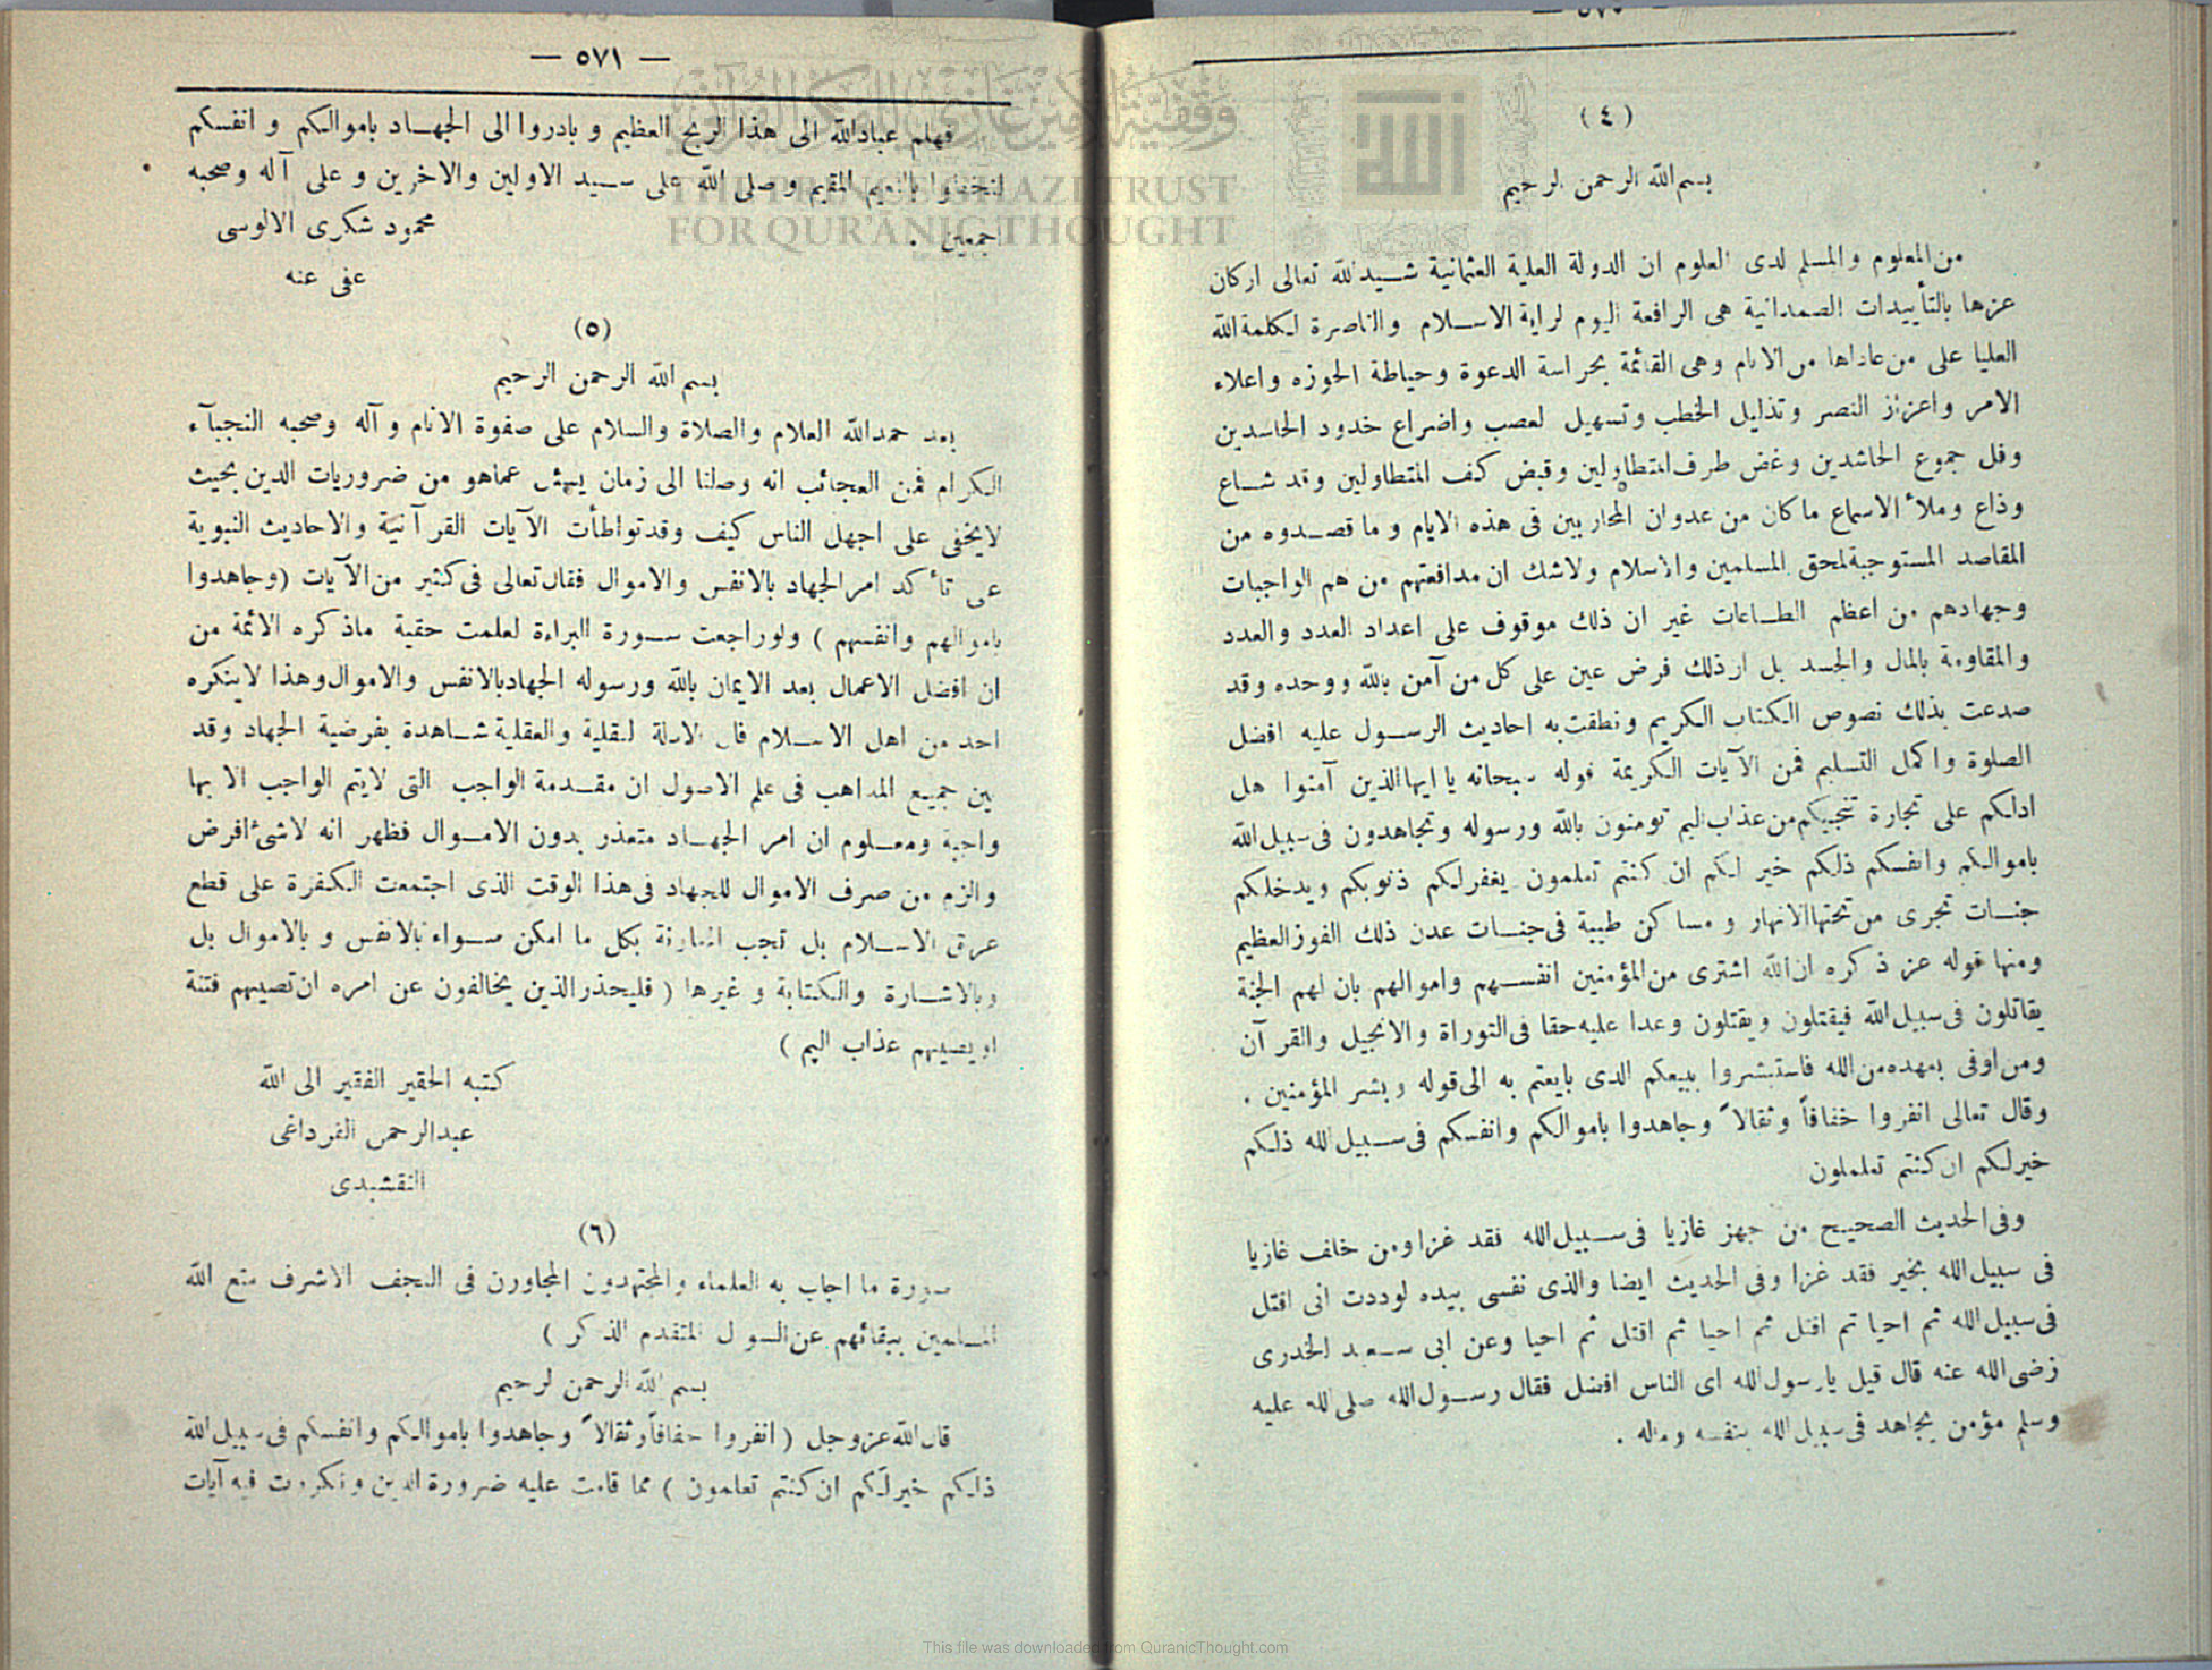 (٤)
بسم الله الرحمن الرحيم
من المعلوم والمسلم لدى العلوم ان الدولة العلية العثمانية شيد الله تعالى اركان
عزها بالتأييدات الصمدانية هى الرافعة اليوم لراية الاسلام والناصرة لكلمة الله
العليا على من عاداها من الانام وهى القائمة بحراسة الدعوة وحياطة الحوزه واعلاء
الامر واعزاز النصر وتذليل الخطب وتسهيل لعصب واضراع خدود الحاسدين
وفل جموع الحاشدين وغض طرف المتطاولين وقبض كف المتطاولين وقد شاع
وذاع وملأ الاسماع ماكان من عدوان المحاربين فى هذه الايام وما قصدوه من
المقاصد المستوجبة لمحق المسلمين والاسلام ولاشك ان مدافعتهم من هم الواجبات
وجهادهم من اعظم الطاعات غير ان ذلك موقوف على اعداد العدد والعدد
والمقاومة بالمال والجسد بل ان ذلك فرض عين على كل من آمن بالله ووحده وقد
صدعت بذلك نصوص الكتاب الكريم ونطقت به احاديث الرسول عليه افضل
الصلوة واكمل التسليم فمن الآيات الكريمة قوله سبحانه يا ايها الذين آمنوا هل
ادلكم على تجارة تنجيكم من عذاب اليم تومنون بالله ورسوله وتجاهدون فى سبيل الله
باموالكم وانفسكم ذلكم خير لكم ان كنتم تعلمون يغفر لكم ذنوبكم ويدخلكم
جنات تجرى من تحتها الانهار ومساكن طيبة فى جنات عدن ذلك الفوز العظيم
ومنها قوله عز ذكره ان الله اشترى من المؤمنين انفسهم واموالهم بان لهم الجنة
يقاتلون فى سبيل الله فيقتلون ويقتلون وعدا عليه حقا فى التوراة والانجيل والقرآن
ومن اوفى بعهده من الله فاستبشروا ببيعكم الذى بايعتم به الى قوله وبشر المؤمنين .
وقال تعالى انفروا خفافاً وثقالاً وجاهدوا باموالكم وانفسكم فى سبيل الله ذلكم
خير لكم ان كنتم تعلملون
وفى الحديث الصحيح من جهز غازيا فى سبيل الله فقد غزا ومن خلف غازيا
فى سبيل الله بخير فقد غزا وفى الحديث ايضا والذى نفسى بيده لوددت انى اقتل
فى سبيل الله ثم احيا ثم اقتل ثم احيا ثم اقتل ثم احيا وعن ابى سعيد الخدرى
رضى الله عنه قال قيل يا رسول الله اى الناس افضل فقال رسول الله صلى الله عليه
وسلم مؤمن يجاهد فى سبيل الله بنفسه وماله .
— ٥٧١ —
فهلم عباد الله الى هذا الربح العظيم و بادروا الى الجهاد باموالكم و انفسكم
لتحظوا بالنعيم المقيم وصلى الله على سيد الاولين والاخرين و على آله وصحبه
اجمعين .
محمود شكرى الالوسى
عفى عنه
(٥)
بسم الله الرحمن الرحيم
بعد حمد الله العلام والصلاة والسلام على صفوة الانام و آله وصحبه النجبآء
الكرام فمن العجائب انه وصلنا الى زمان يسئل عماهو من ضروريات الدين بحيث
لايخفى على اجهل الناس كيف وقد تواطأت الآيات القرآنية والاحاديث النبوية
على تأكد امر الجهاد بالانفس والاموال فقال تعالى فى كثير من الآيات (وجاهدوا
باموالهم وانفسهم ) ولو راجعت سورة البراءة لعلمت حقية ماذكره الائمة من
ان افضل الاعمال بعد الايمان بالله ورسوله الجهاد بالانفس والاموال وهذا لاينكره
احد من اهل الاسلام فان الادلة لنقلية والعقلية شاهدة بفرضية الجهاد وقد
بين جميع المذاهب فى علم الاصول ان مقدمة الواجب التى لايتم الواجب الا بها
واجبة ومعلوم ان امر الجهاد متعذر بدون الاموال فظهر انه لاشئ افرض
والزم من صرف الاموال للجهاد فى هذا الوقت الذى اجتمعت الكفرة على قطع
عرق الاسلام بل تجب المعاونة بكل ما امكن سواء بالانفس و بالاموال بل
وبالاشارة والكتابة و غيرها ( فليحذر الذين يخالفون عن امره ان تصيبهم فتنة
او يصيبهم عذاب اليم )
كتبه الحقير الفقير الى الله
عبدالرحمن القرداغى
النقشبدى
(٦)
صورة ما اجاب به العلماء والمجتهدون المجاورن فى النجف الاشرف متع الله
المسلمين ببقائهم عن السول المتقدم الذكر )
بسم الله الرحمن لرحيم
قال الله عزوجل ( انفروا خفافاً وثقالاً وجاهدوا باموالكم وانفسكم فى سبيل الله
ذلكم خير لكم ان كنتم تعلمون ) مما قامت عليه ضرورة الدين وتكررت فيه آيات
وقفية الأمير غازي للفكر القرآني
THE PRINCE GHAZI TRUST
FOR QUR'ĀNIC THOUGHT
This file was downloaded from QuranicThought.com